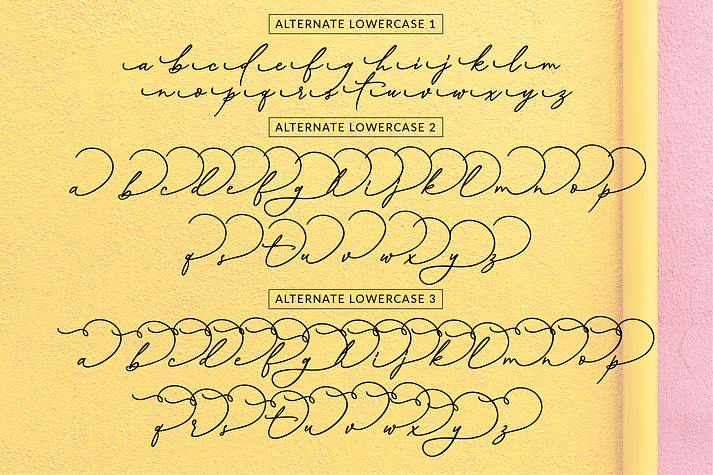 ALTERNATE LOWERCASE 1
a b c d e f g h i j k l m
n o p q r s t u v w x y z
ALTERNATE LOWERCASE 2
a b c d e f g h i j k l m n o p
q s t u v w x y z
ALTERNATE LOWERCASE 3
a b c d e f g h i j k l m n o p
q r s t u v w x y z